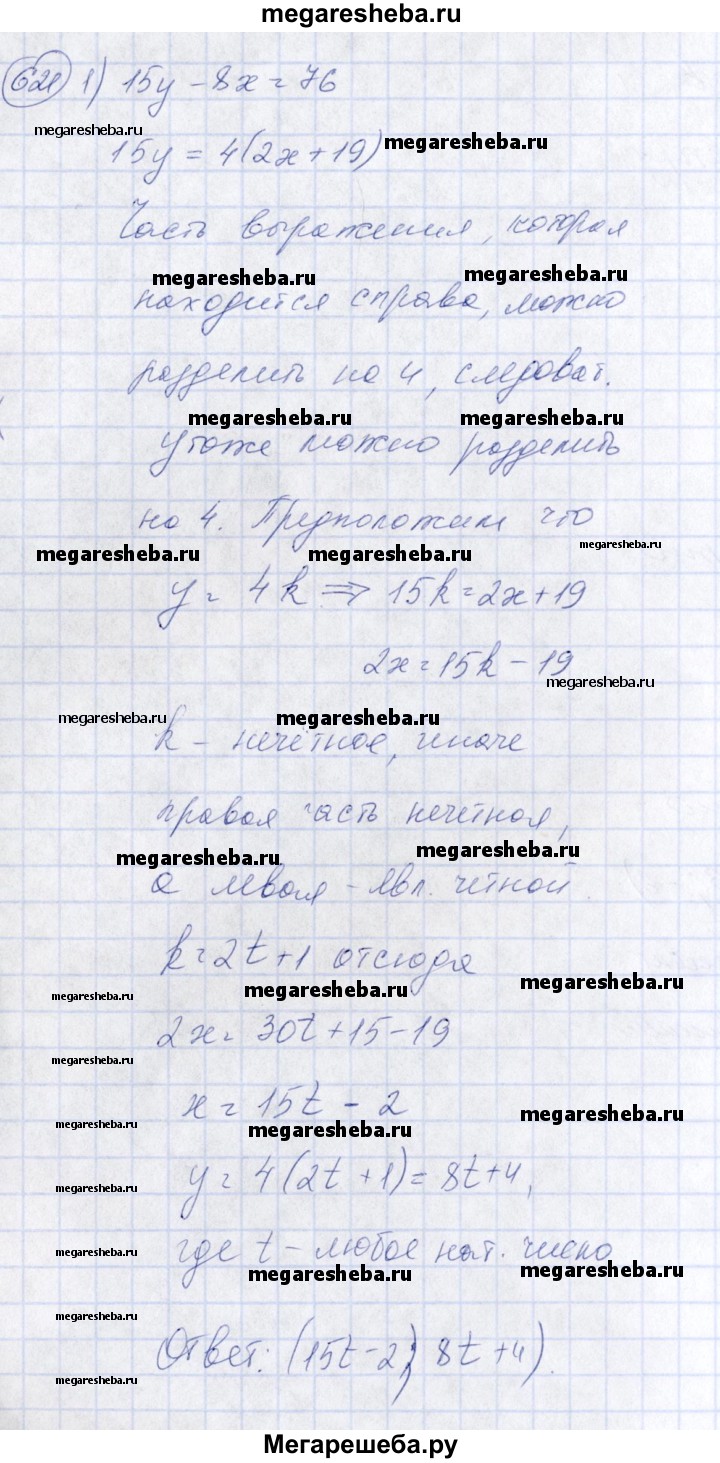 megaresheba.ru
621 1) 15y - 8x = 76
megaresheba.ru
15y = 4(2x+19) megaresheba.ru
Часть выражения, которая
megaresheba.ru megaresheba.ru
находится справа, можно
разделить на 4, следоват.
megaresheba.ru megaresheba.ru
y тоже можно разделить
на 4. Предположим что
megaresheba.ru megaresheba.ru megaresheba.ru
y = 4k ⇒ 15k = 2x+19
2x = 15k - 19
megaresheba.ru
megaresheba.ru megaresheba.ru
k - нечётное, иначе
правая часть нечётная,
megaresheba.ru megaresheba.ru
а левая - явл. чётной.
k = 2t+1 отсюда
megaresheba.ru megaresheba.ru megaresheba.ru
2x = 30t+15-19
megaresheba.ru
x = 15t - 2
megaresheba.ru megaresheba.ru megaresheba.ru
y = 4(2t+1) = 8t+4,
megaresheba.ru
где t - любое нат. число
megaresheba.ru megaresheba.ru megaresheba.ru
megaresheba.ru
Ответ: (15t-2; 8t+4).
megaresheba.ru
Мегарешеба.ру